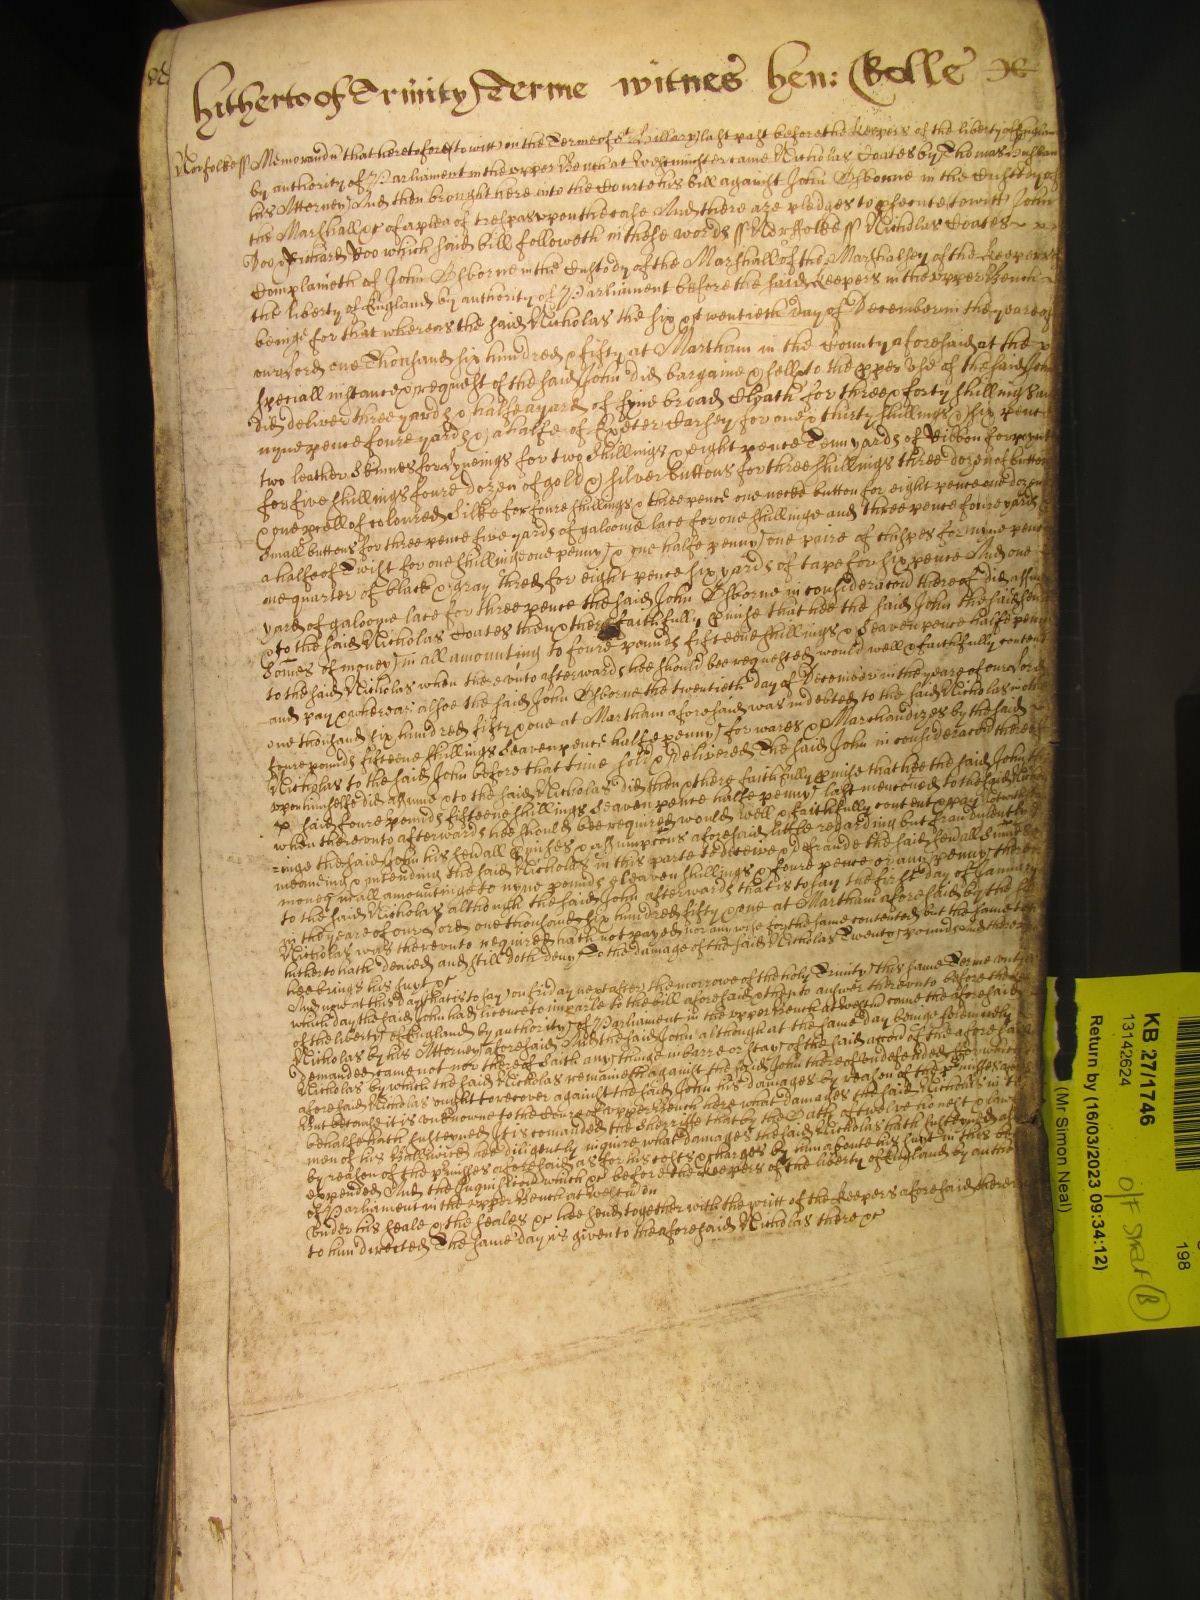 hitherto of Trinity Terme witnes Hen: Rolle &c
Norfolke ss Memorand that heretofore to witt in the Terme of st Hillary last past before the keepers of the liberty of England
by authority of Parliament in the upper Bench at Westminster came Nicholas Coates by Thomas
his Attorney And then brought here into the Court his bill against John Osborne in the Custody of
the Marshall &c of a plea of trespas upon the case And there are pledges to prosecute to witt John
Doo & Richard Roo which said bill followeth in these words ss Norffolke ss Nicholas Coates
Complaineth of John Osborne in the Custody of the Marshall of the Marshalsey of the keepers of
the liberty of England by authority of Parliament before the said keepers in the upper Bench
beinge for that whereas the said Nicholas the six & twentieth day of December in the yeare of
our Lord one Thousand six hundred & fifty at Martham in the County aforesaid at the
speciall instance & request of the said John did bargaine & sell & to the proper use of the said John
did deliver three yards & halfe a yard of fyne broad Cloath for three & forty shillings and
nyne pence foure yards & a halfe of Exeter Carsey for one & thirty shillings & six pence
two leather Skinnes for Lyneings for two shillings & eight pence Tenn yards of Ribbon for
for five shillings foure dozen of gold & silver buttons for three shillings three dozen of buttons
& one pcell of coloured Silke for foure shillings & three pence one necke button for eight pence one dozen
Small buttons for three pence five yards of galoome lace for one shillinge and three pence foure yards
a halfe of Twist for one shillinge one penny & one halfe penny one paire of Claspes for nyne pence
one quarter of black & gray thred for eight pence six yards of tape for six pence And one
yard of galoome lace for three pence the said John Osborne in consideracon thereof did assume
& to the said Nicholas Coates then & there faithfully pmise that hee the said John the said severall
Somes of money in all amounting to foure pounds fifteene shillings & Seaven pence halfe penny
to the said Nicholas when thereunto afterwards hee should bee requested would well & faithfully content
and pay & whereas alsoe the said John Osborne the twentieth day of December in the yeare of our Lord
one thousand six hundred fifty & one at Martham aforesaid was indebted to the said Nicholas in other
foure pounds fifteene shillings Seaven pence halfe penny for wares & Marchandizes by the said
Nicholas to the said John before that time sold & delivered The said John in consideracon thereof
upon himselfe did assume & to the said Nicholas did then & there faithfully pmise that hee the said John the
said foure pounds fifteene shillings Seaven pence halfe penny last mencioned to the said Nicholas
when thereunto afterwards hee should bee required would well & faithfully content & pay
the said John his severall pmises & assumpcons aforesaid little regarding but fraudulently
meaneing & intending the said Nicholas in this parte to deceive & defraude the said severall Somes of
money in all amountinge to nyne pounds eleaven shillings & foure pence or any penny thereof
to the said Nicholas although the said John afterwards that is to say the first day of January
in the yeare of our Lord one thousand six hundred fifty & one at Martham aforesaid by the said
Nicholas was thereunto required hath not payed nor any wise for the same contented but the same to
hitherto hath denied and still doth deny To the damage of the said Nicholas Twenty pounds And thereupon
hee brings his suyt &c
And now at this day that is to say on friday next after the morrowe of the holy Trinity this same Terme untill
which day the said John had licence to imparle to the bill aforesaid & then to answer thereunto before the keepers
of the liberty of England by authority of Parliament in the upper Bench at Westm came the aforesaid
Nicholas by his Attorney aforesaid And the said John although at the same day beinge solemnly
demanded came not nor thereof saith any thinge in barre or stay of the said accon of the aforesaid
Nicholas by which the said Nicholas remaineth against the said John thereof undefended for which
aforesaid Nicholas ought to recover against the said John his damages by reason of the pmisses
But because it is unknowne to the Court of upper Bench here what damages the said Nicholas in this
behalfe hath susteyned It is comanded the Sheriffe that by the Oath of twelve honest & lawfull
men of his Bailiwick hee diligently inquire what damages the said Nicholas hath susteyned
by reason of the pmisses aforesaid as for his costs & charges by him aboute his suyt in this
expended And the Inquisicion which &c before the keepers of the liberty of England by authority
of Parliament in the upper Bench at Westm on
under his seale & the seales &c hee send together with the writt of the keepers aforesaid thereof
to him directed The same day is given to the aforesaid Nicholas there &c
KB 27/1746
13142624
Return by (16/03/2023 09:34:12)
(Mr Simon Neal)
198